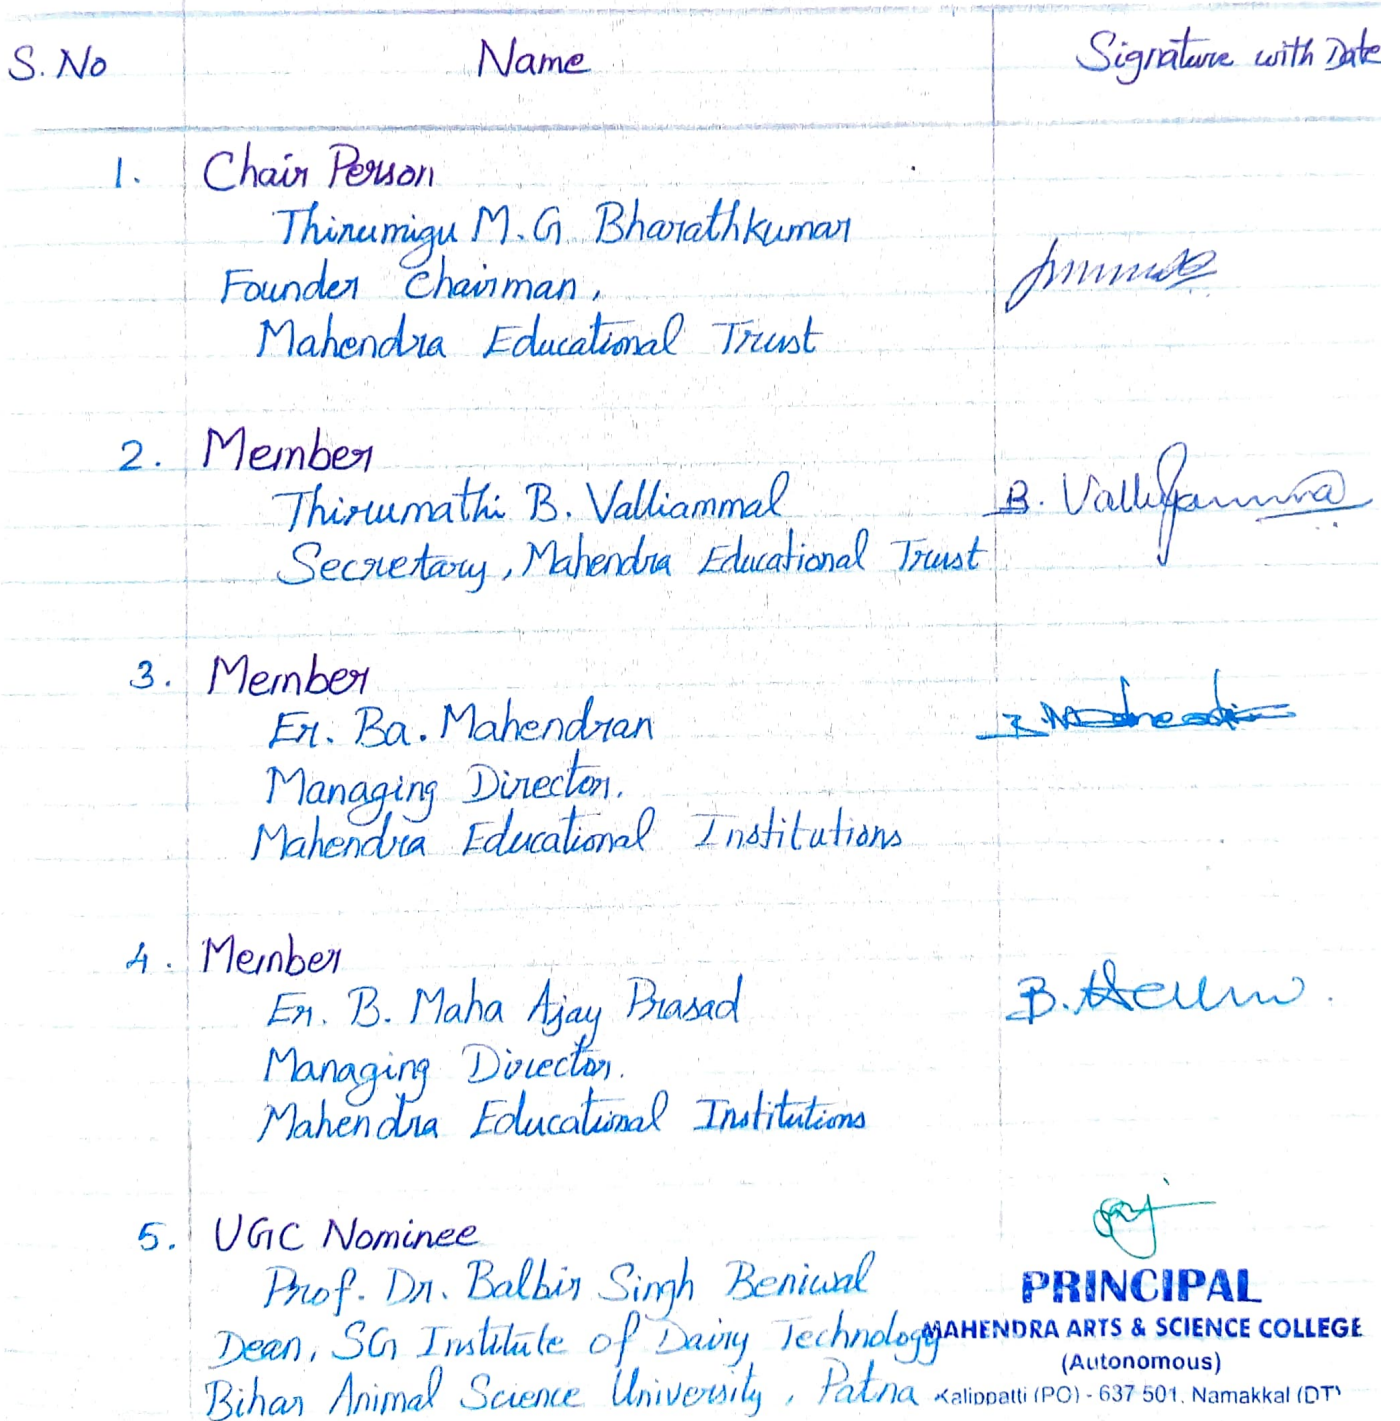 S. No Name Signature with Date
1. Chair Person
Thirumigu M.G. Bharathkumar
Founder Chairman,
Mahendra Educational Trust
2. Member
Thirumathi B. Valliammal B. Valliyamma
Secretary, Mahendra Educational Trust
3. Member
Er. Ba. Mahendran
Managing Director.
Mahendra Educational Institutions
4. Member
Er. B. Maha Ajay Prasad B.
Managing Director.
Mahendra Educational Institutions
5. UGC Nominee
Prof. Dr. Balbir Singh Beniwal
Dean, SG Institute of Dairy Technology
Bihar Animal Science University, Patna
PRINCIPAL
MAHENDRA ARTS & SCIENCE COLLEGE
(Autonomous)
Kalippatti (PO) - 637 501. Namakkal (DT)